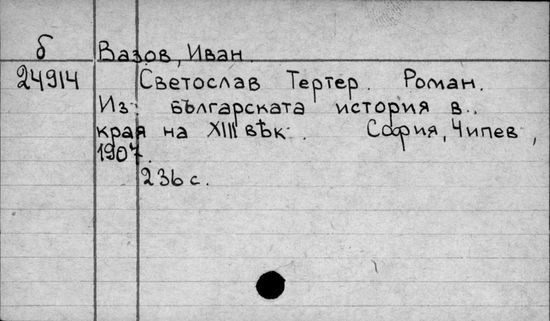 б Вазов, Иван.
24914 Светослав Тертер. Роман.
Из българската история в..
края на XIII вѣк. София, Чипев,
1907.
236 с.